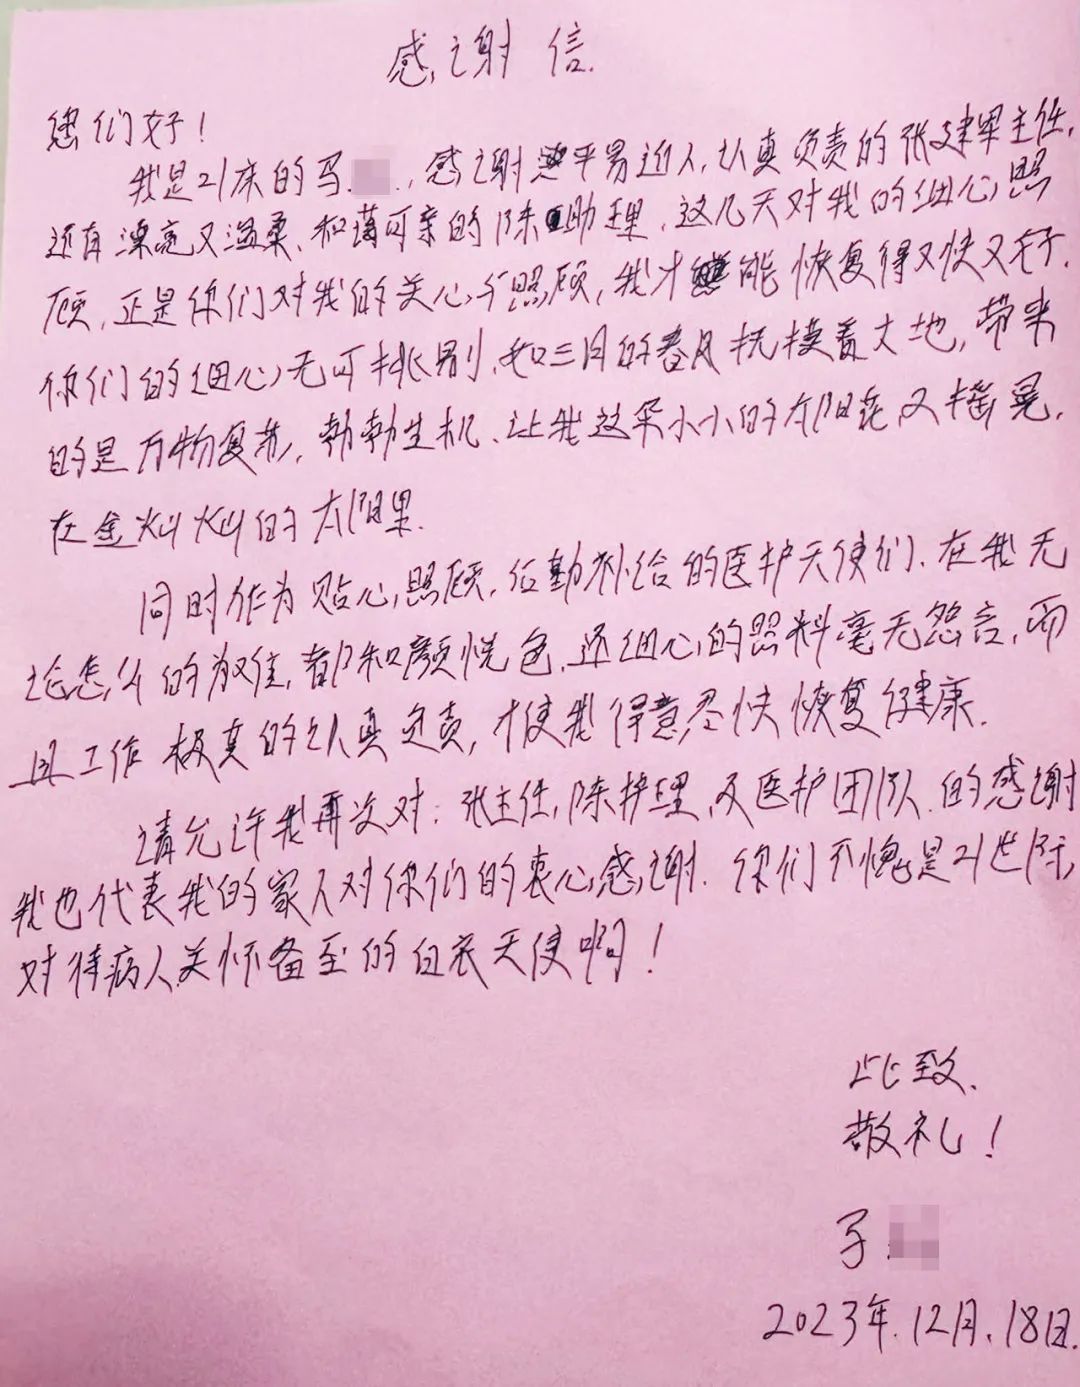 感谢信.
您们好!
我是21床的马,感谢平易近人,认真负责的张建军主任,
还有漂亮又温柔、和蔼可亲的陈助理,这几天对我的细心照
顾,正是你们对我的关心与照顾,我才能恢复得又快又好.
你们的细心无可挑剔,如三月的春风抚摸着大地,带来
的是万物复苏,勃勃生机、让我这朵小小的太阳花又摇晃.
在金灿灿的太阳里.
同时作为贴心照顾,后勤补给的医护天使们.在我无
论怎么的为难,都和颜悦色.还细心的照料毫无怨言,而
且工作极其的认真负责,才使我得意尽快恢复健康.
请允许我再次对:张主任,陈护理,及医护团队.的感谢
我也代表我的家人对你们的衷心感谢.你们不愧是21世际,
对待病人关怀备至的白衣天使啊!
此致.
敬礼!
马
2023年.12月.18日.